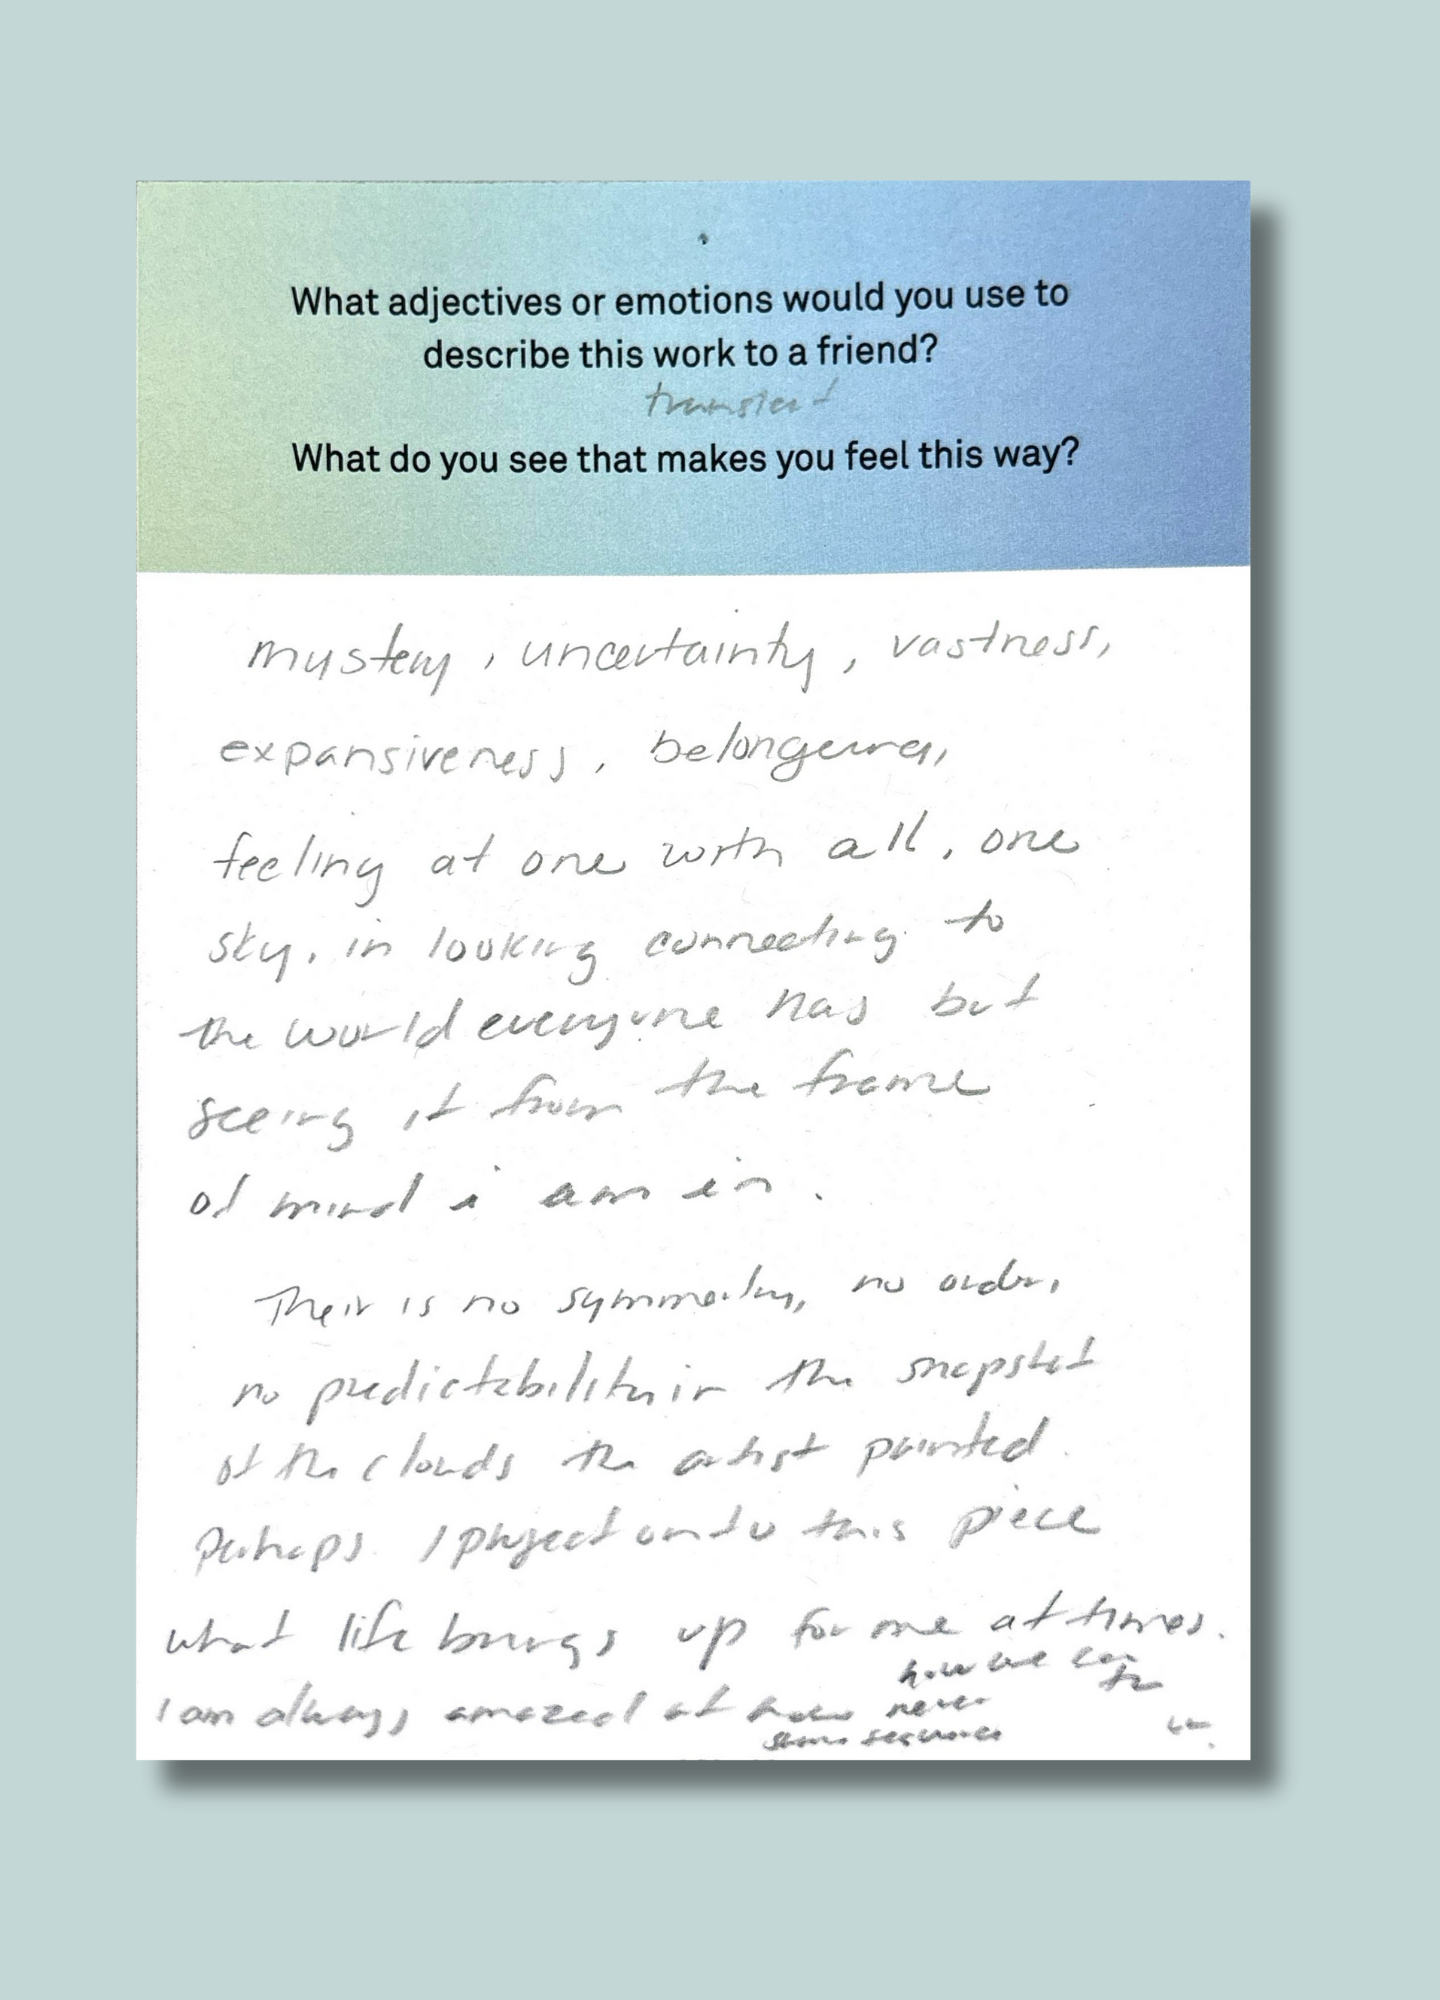 What adjectives or emotions would you use to
describe this work to a friend?
What do you see that makes you feel this way?
mystery, uncertainty, vastness,
expansiveness,
feeling at one with all, one
sky. in looking connecting to
the world everyone has but
seeing it from the frame
of mind i am in.
Their is no symmetry, no order,
no predictability in the snapshot
of the clouds the artist painted.
Perhaps I project onto this piece
what life brings up for me at times.
how we can
I am always amazed at never
same